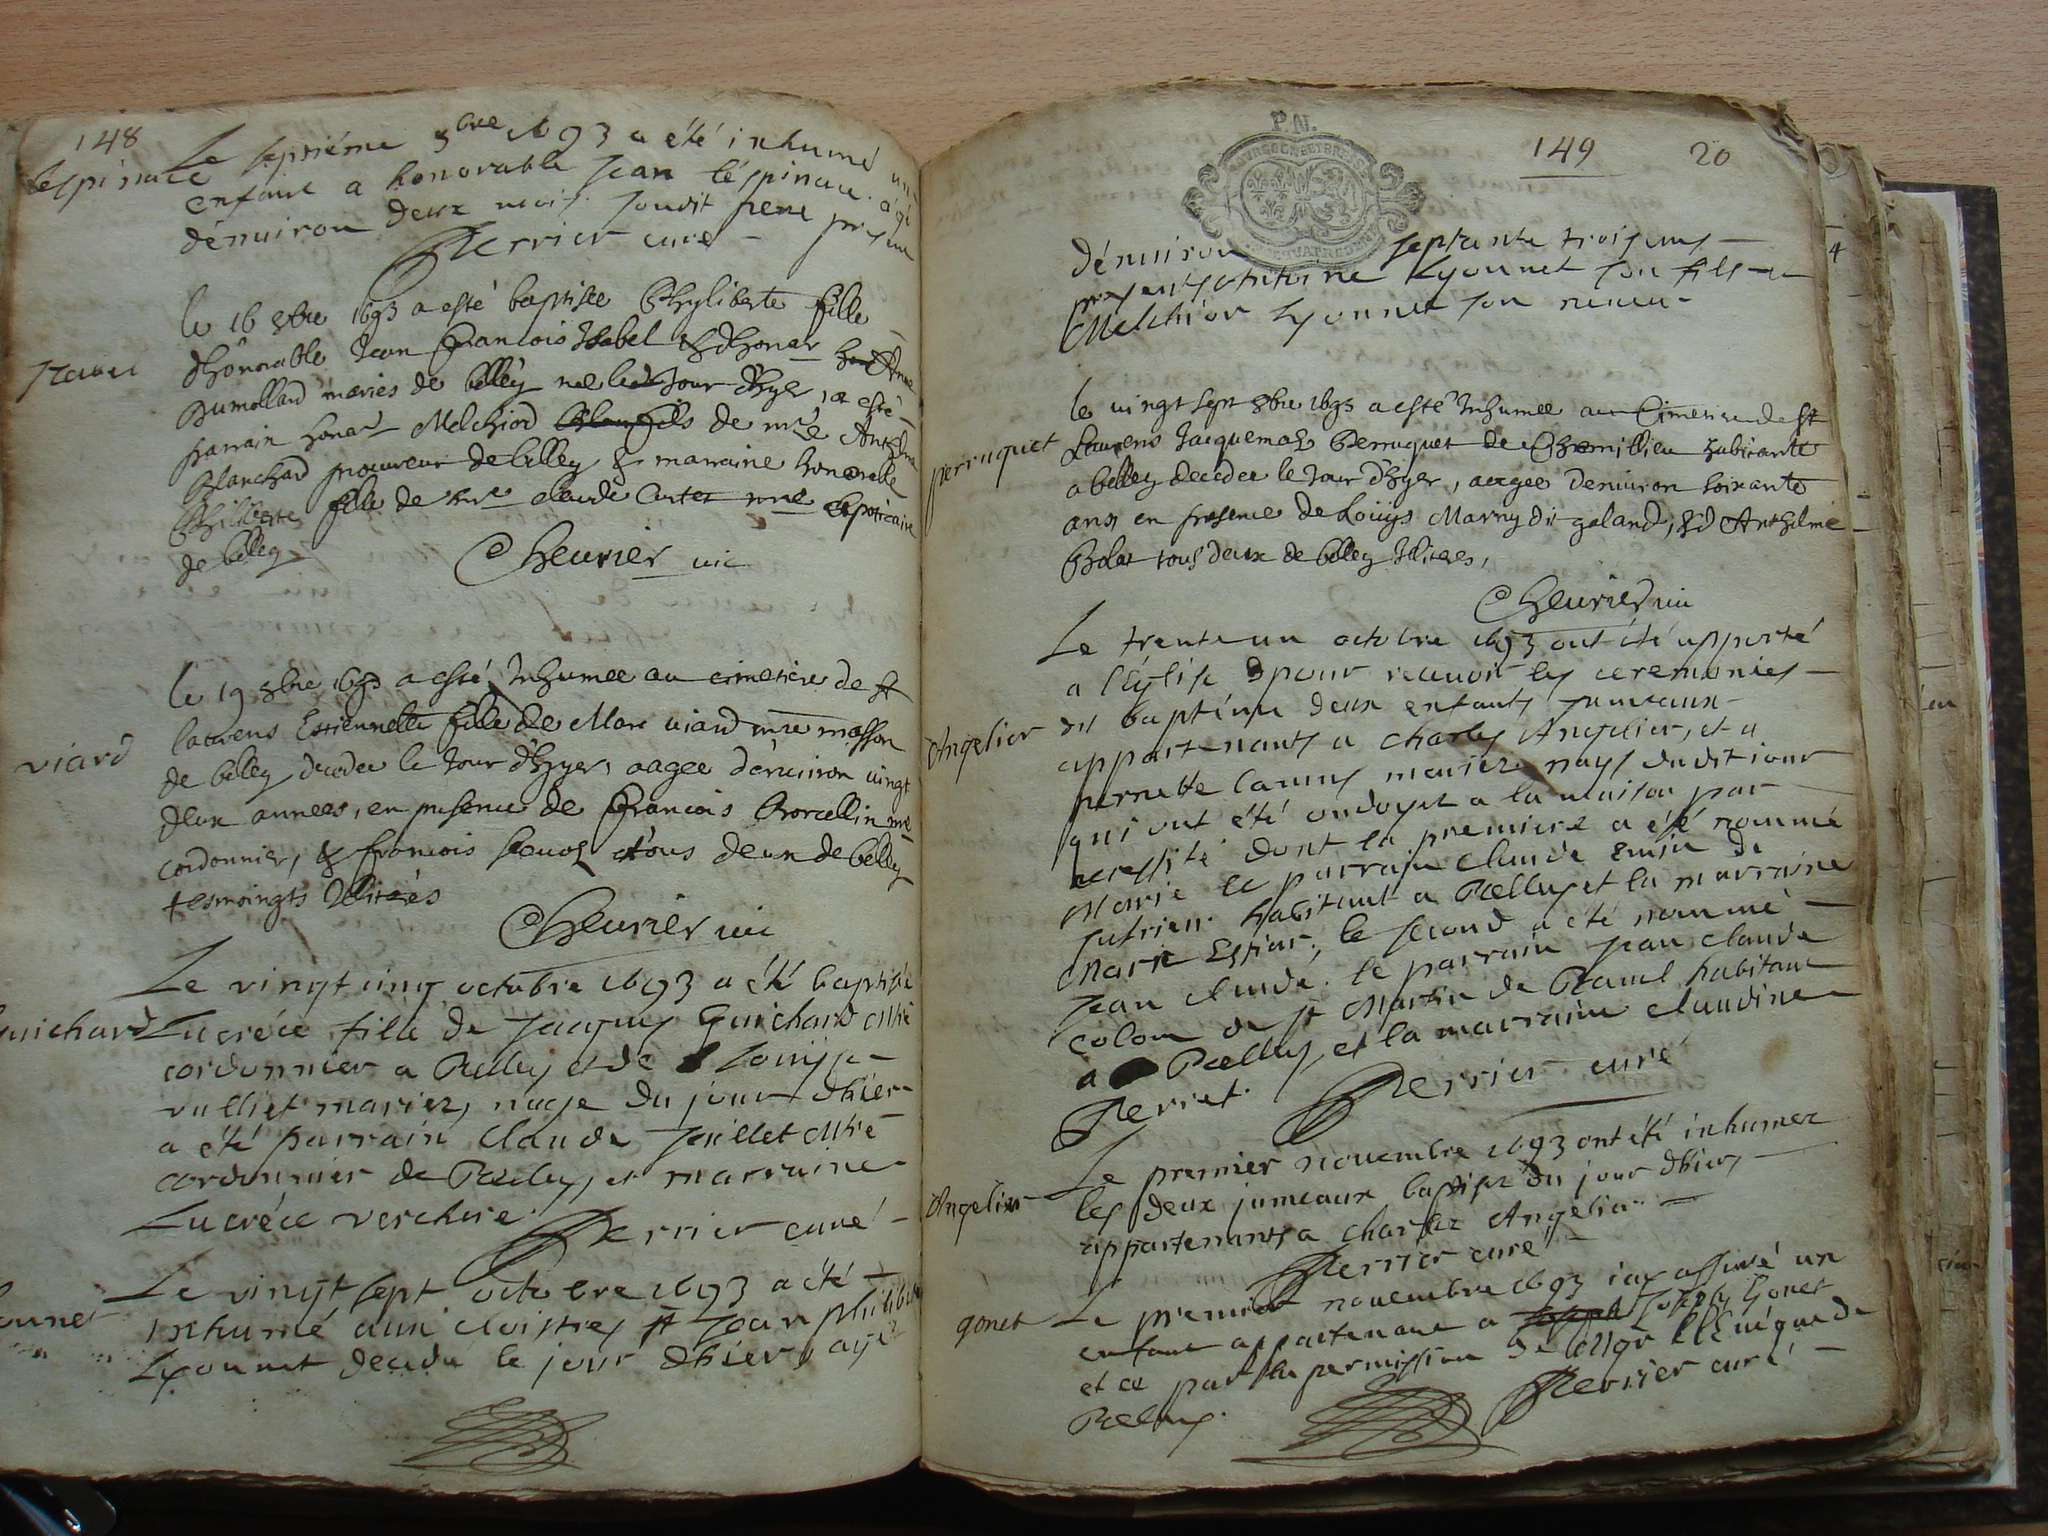 148
Le septiéme 8bre 1693 a été inhumé un
lespinace
enfant a honorable Jean léspinace. agé
dénuiron deux mois. soudit pere present
Perrier curé
le 16 8bre 1693 a esté baptisée Philiberte fille
dhônorable Jean François Isabel & dhonar Anne
Dumollard mariés de belley née le jour dhyer, a esté
parrain honar Melchiod fils de mre Anthelme
Blanchard procureur de belley & marraine honorable
Philiberte fille de mre claude Cartet mre Apoticaire
de belley
Cheurier uic
le 19 8bre 1693 a esté Inhumee au cimetiere de st
laurens Estiennette fille de Marc uiard mre masson
viard
de belley decedee le Jour dhyer, aagee d'enuiron uingt
deux annees, en presence de François Borcellin me
cordonnier, & francois tous deux de belley
tesmoingts Illiterés
Cheurier uic
Le vingt cinq octobre 1693 a été baptisée
guichard
Lucréce fille de Jacques Guichard Mtre
cordonnier a Belley et de Louise
vulliet mariez, naye du jour dhier
a été parrain Claude Juillet Mtre
cordonnier de Belley, et marraine
Lucréce verchere.
Perrier curé
Le vingt sept octobre 1693 a été
inhumé aux cloistres st Jean philibert
Lyonnet decedé le jour dhier, agé
P.N.
149
20
dénuiron septante trois ans
present Antoine Lyonnet son fils et
Melchior Lyonnet son neueu
le uingt sept 8bre 1693 a esté Inhumee au Cimetiere de st
Laurens Jacquemaz Perruquet de Chemillieu habitante
perruquet
a belley decedee le Jour dhyer, aagee denuiron soixante
ans en presence de Loüys Marny dit galand, & d'Anthelme
Bolat tous deux de belley Illiteres,
Cheurier uic
Le trente un octobre 1693 ont été apporté
a l'Église pour receuoir les ceremonies
du baptéme deux enfants jumeaux
Angelier
appartenants a Charles Angelier, et a
perrette mariez nays dudit jour
qui ont été ondoyez a la maison par
necessité dont la premiere a été nommé
Marie le parrain Claude de
habitant a Belley et la marraine
Marie le second a été nommé
Jean claude. le parrain Jean Claude
colom de st Martin de habitant
a Belley, et la marraine Claudine
Perret.
Perrier curé
Le premier nouembre 1693 ont été inhumez
les deux jumeaux baptisez du jour dhier,
Angelier
appartenants a Charlez Angelier.
Perrier curé
Le premier nouembre 1693 un
gonet
enfant appartenant a Joseph Gonet
et ce par la permission de Mgr l'Euéque de
Belley.
Perrier curé